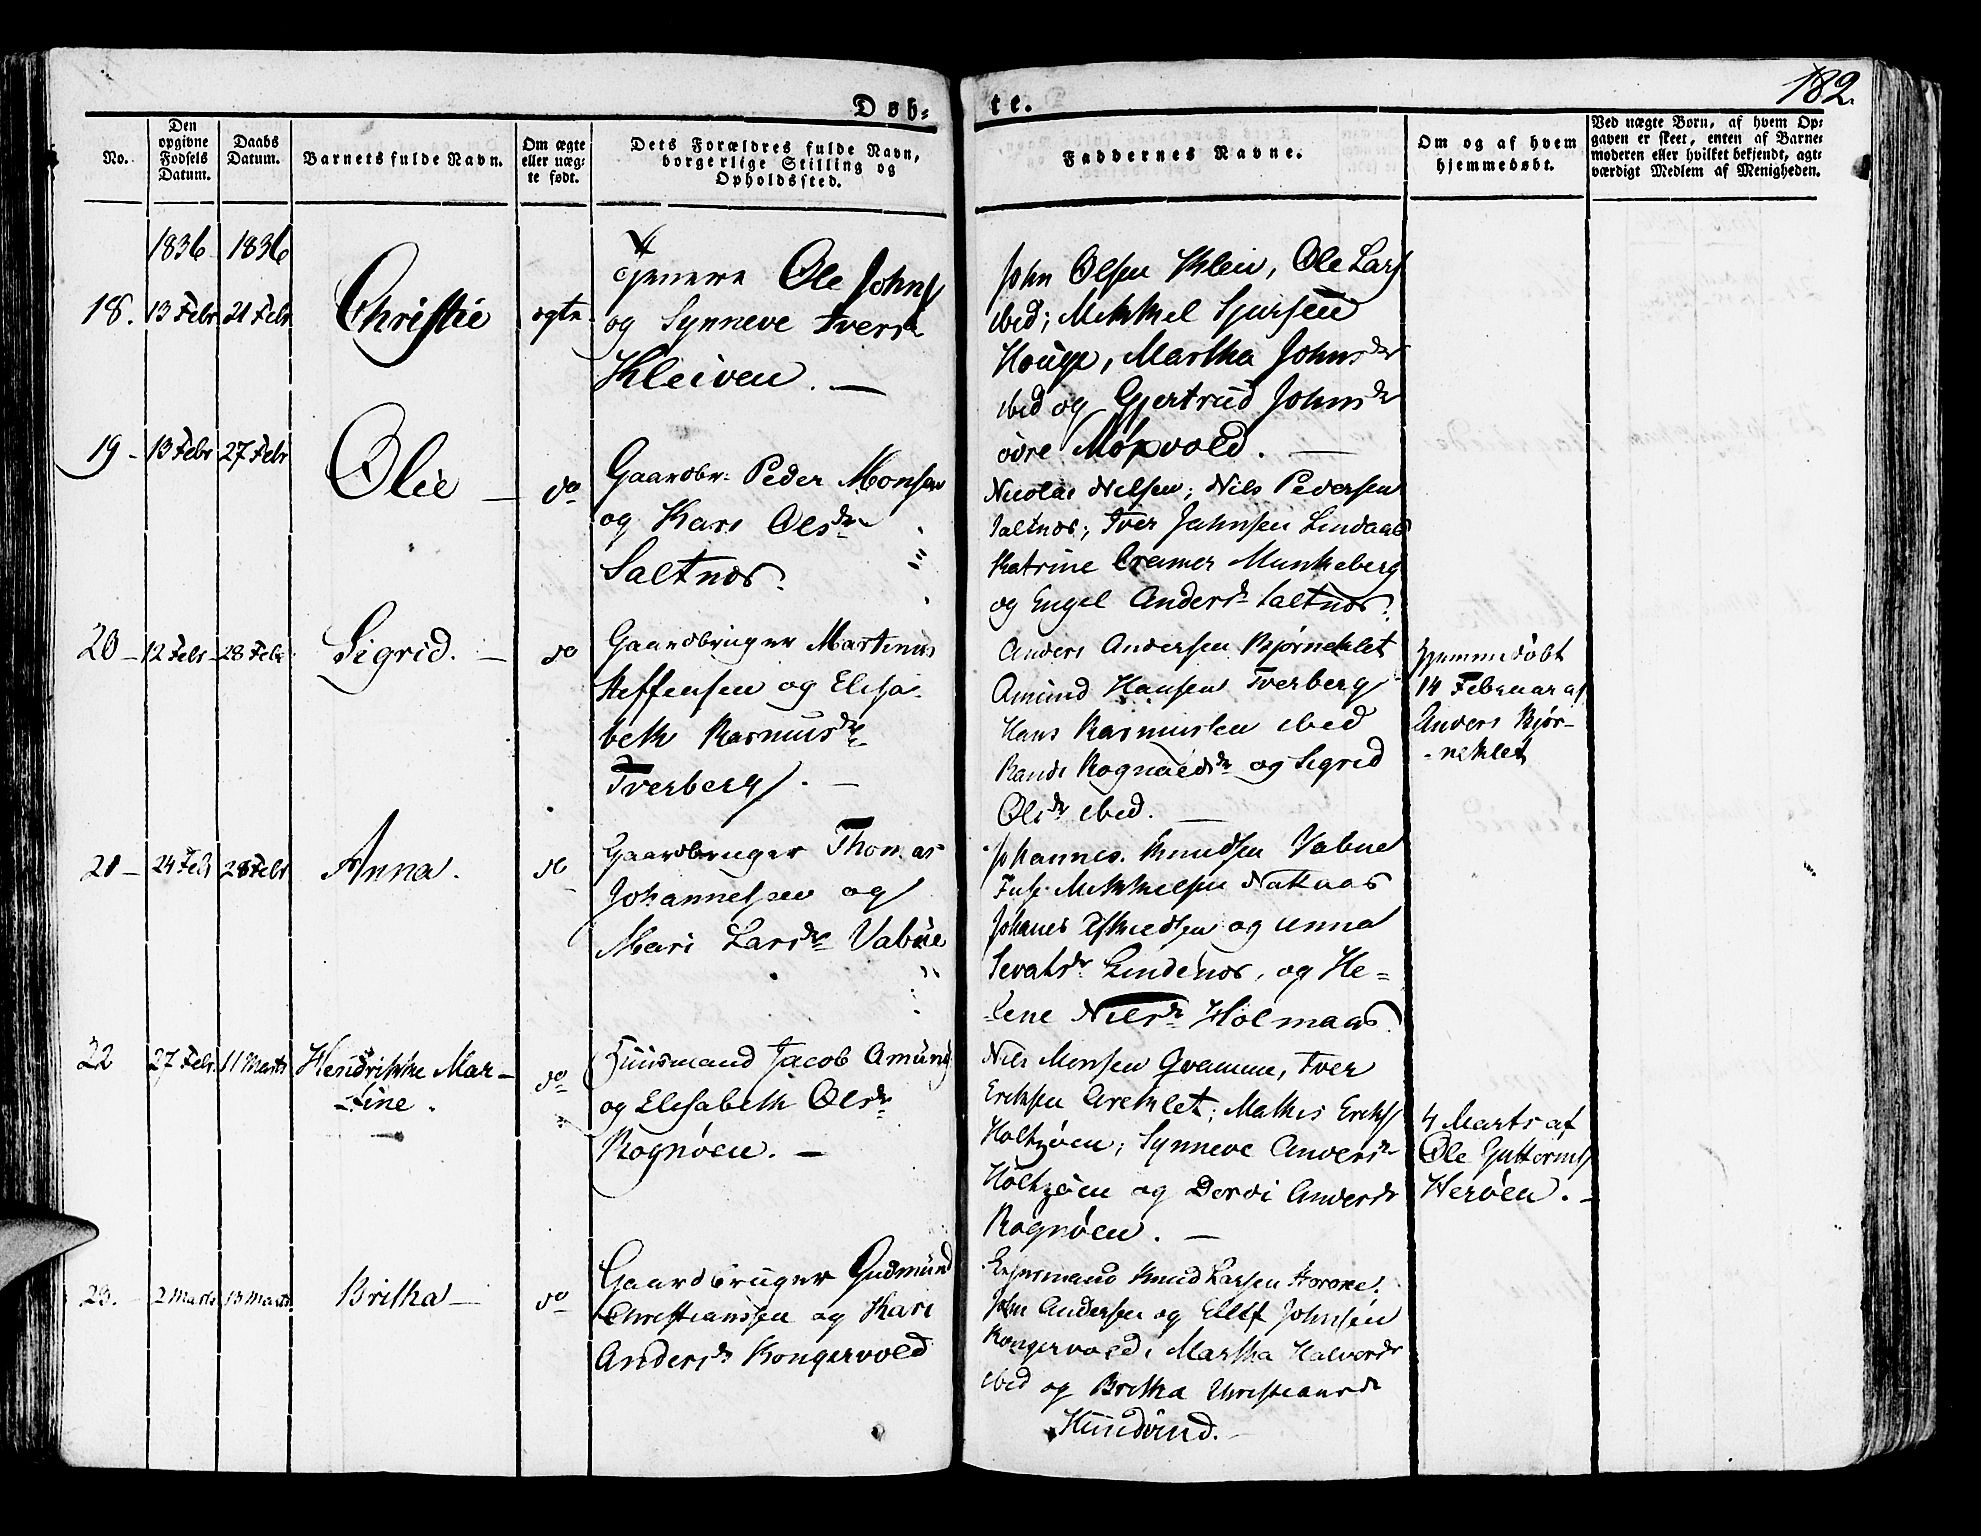 182.
Døb-
te.
No.
Den opgivne Fødsels Datum.
Daabs Datum.
Barnets fulde Navn.
Om ægte eller uæg-
te født.
Dets Forældres fulde Navn,
borgerlige Stilling og
Opholdssted.
Faddernes Navne.
Om og af hvem
hjemmedøbt.
Ved uægte Børn, af hvem Op-
gaven er skeet, enten af Barne-
moderen eller hvilket bekjendt, agt-
værdigt Medlem af Menigheden.
1836 1836
18. 13 Febr 21 Febr Christie ægte
Ole Johns
og Synneve Ivers
Kleiven. —
John Olsen Klei, Ole Lars
ibid; Mikkel Sjursen
Houge, Martha Johnsdr
ibid og Gjertrud Johnsdr
övre
19 - 13 Febr 27 Febr Olie — do
Gaardbr: Peder Monsen
og Kari Olsdr
Saltnes.
Nicolai Nilsen; Nils Pedersen
Saltnes; Iver Johnsen Lindaas
Katrine Cramer Munkeberg
og Engel Andersdr Saltnes.
20 - 12 Febr - 28 Febr. Sigrid. — do
Gaardbruger Martinus
Steffensen og Elisa-
beth Rasmusdr
Tverberg. —
Anders Andersen Bjørneklet
Amund Hansen Tverberg
Hans Rasmussen ibid
Randi Rognaldsdr og Sigrid
Olsdr ibid. —
Hjemmedöbt
14 Februar af
Anders Bjør-
-neklet
21 - 24 Feb 28 Febr Anna. do
Gaardbruger Thomas
Johannesen og
Mari Larsdr Vabøe
Johannes Knudsen Vabøe
Mikkelsen
og Anna
Lindenes, og He-
-lene Nilsdr Holmaas.
22 27 Febr. 11 Marts Hendrikke Mar-
-tine. do
Huusmand Jacob Amunds
og Elisabeth Olsdr
Rognöen. —
Nils Monsen Qvamme, Iver
Eriksen Areklet; Mathis Eriks
Synneve Andersdr
og Dordi Andersdr
Rognöen. —
4 Marts af
Ole Guttorms
Herøen. —
23. - 2 Marts 13 Marts. Britha — do
Gaardbruger Gudmund
Christianssen og Kari
Andersdr Kongervold
Knud Larsen
John Andersen og Ellef Johnsen
Kongervold, Martha Halvordr
ibid og Britha Christiansdr
Hundvind. —